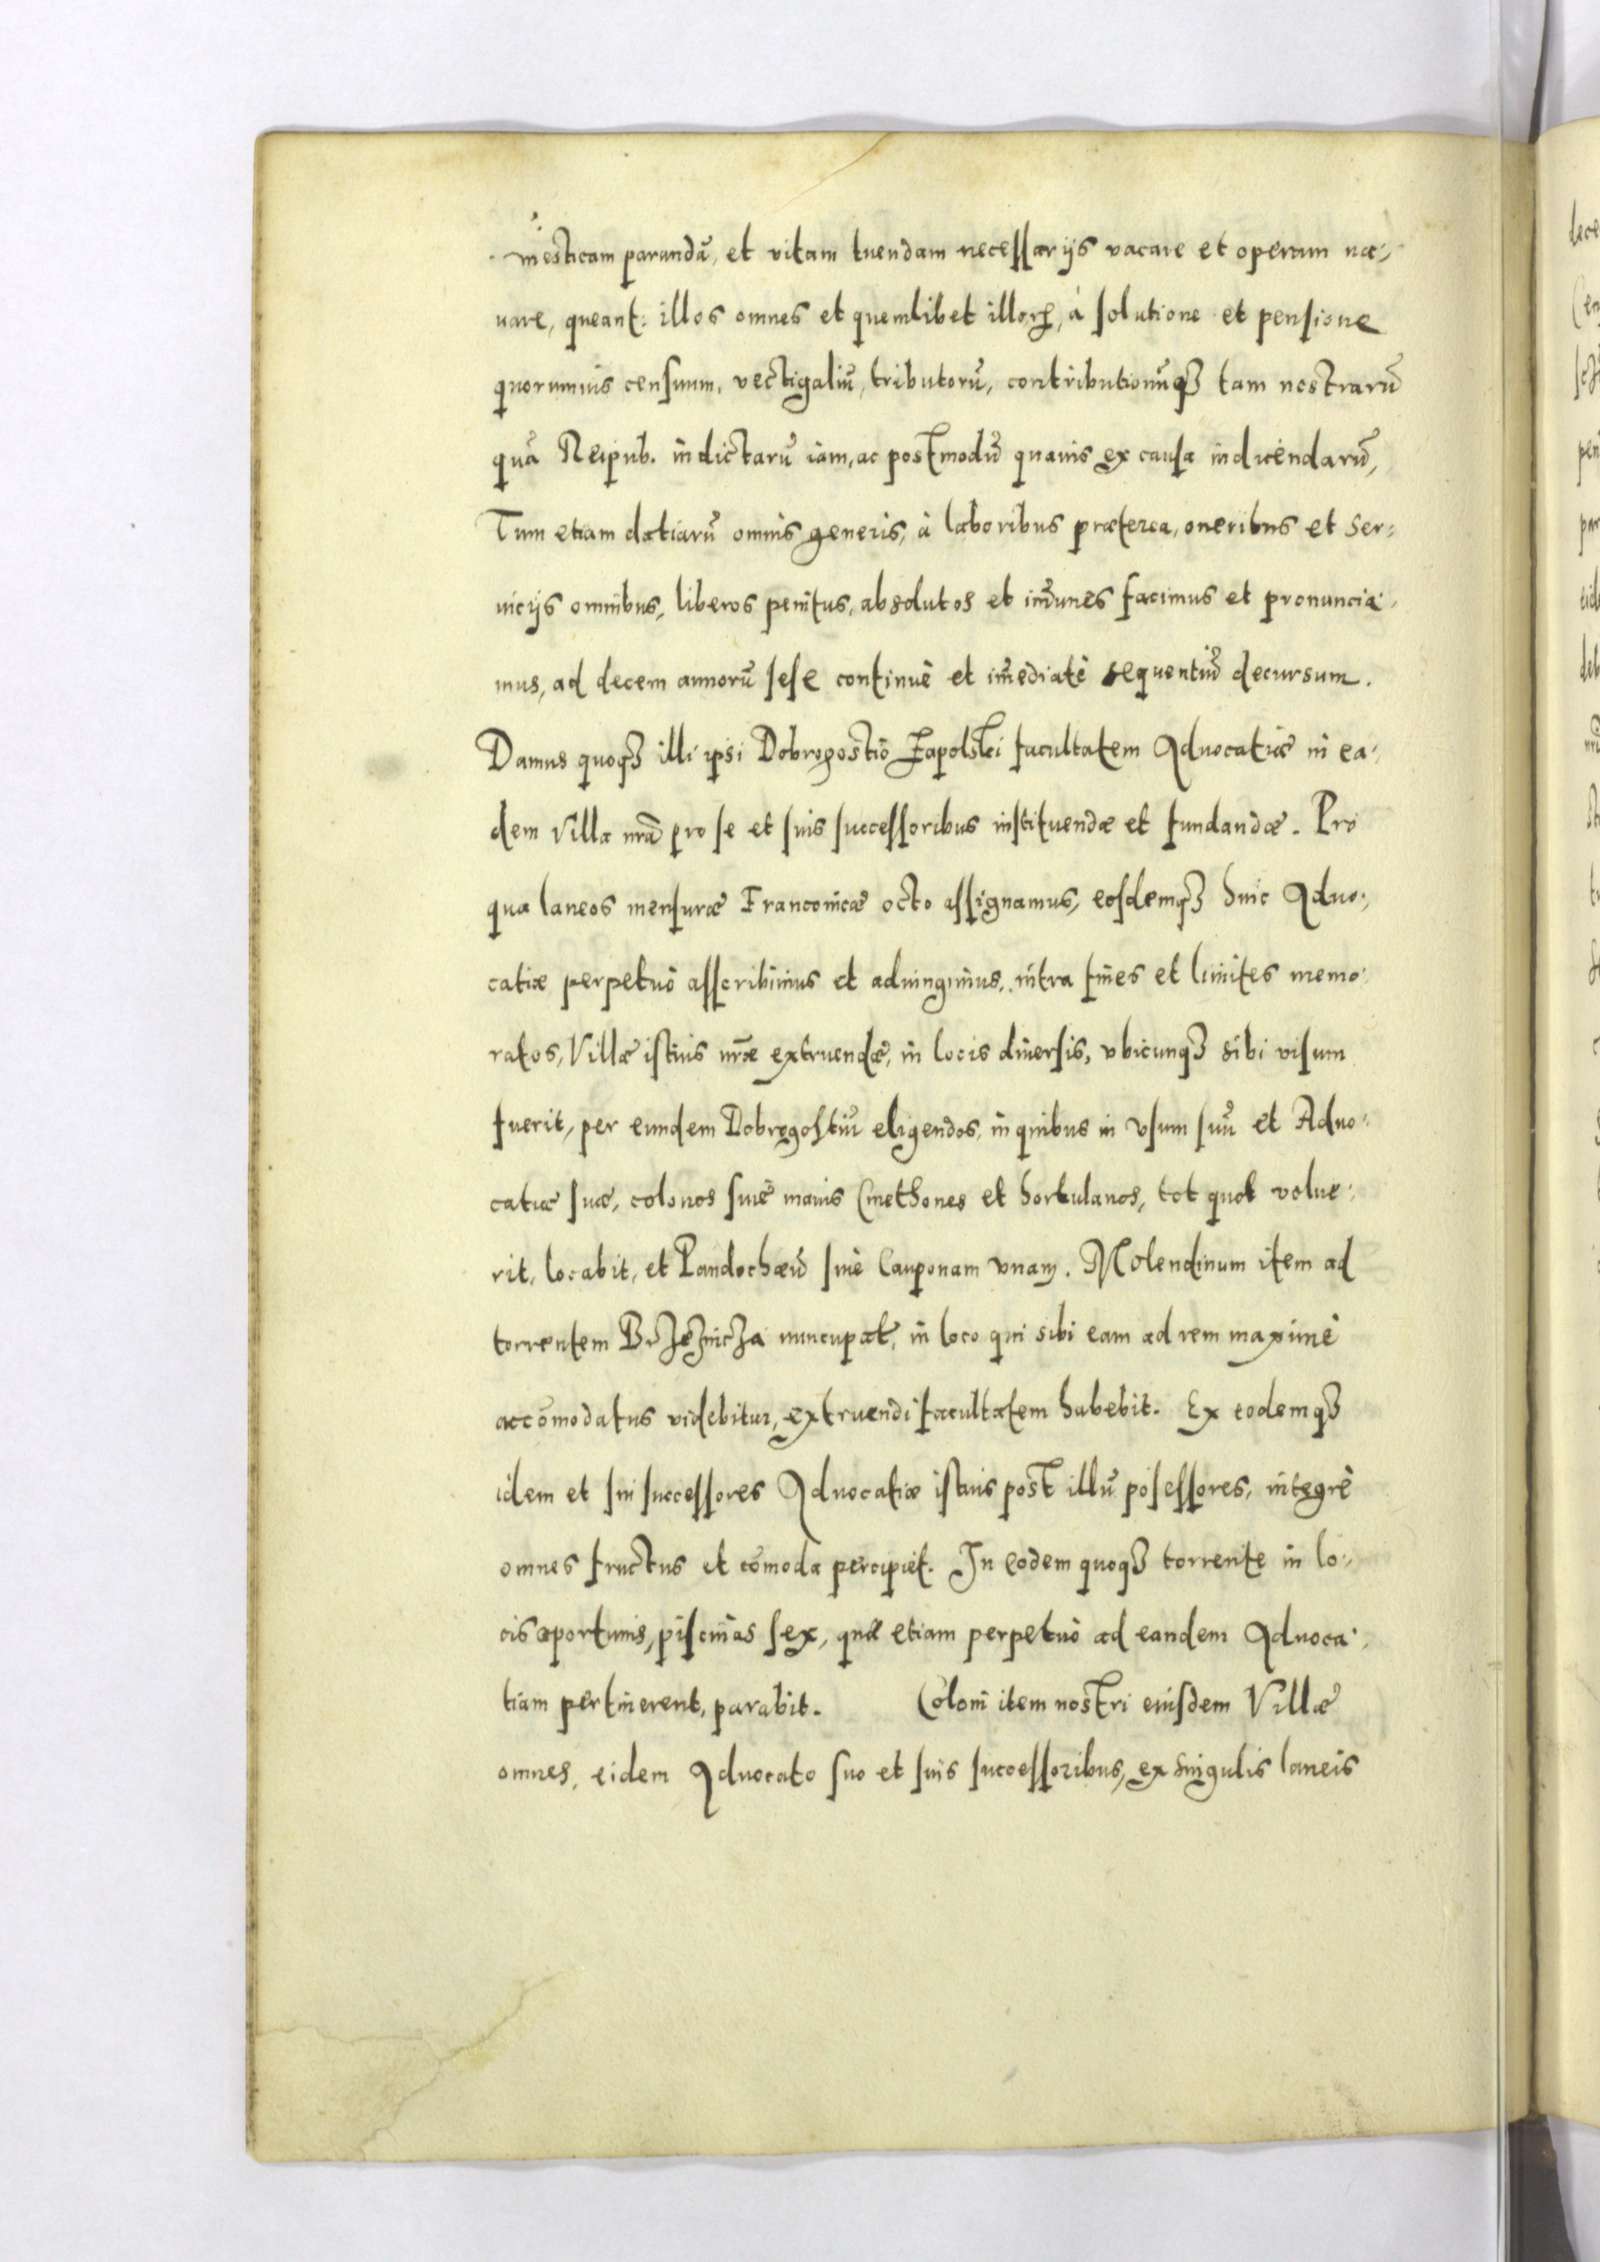 mesticam parandā, et vitam tuendam necessarijs vacare et operam na-
uare, queant: illos omnes et quemlibet illorꝝ, à solutione et pensione
quorumuis censuum, vectigaliū, tributorū, contributionūqꝫ tam nostrarū
quā Reipub. indictarū iam, ac postmodū quauis ex causa indicendarū,
Tum etiam datiarū omnis generis, à laboribus præterea, oneribus et ser-
uicijs omnibus, liberos penitus, absolutos et im̄unes facimus et pronuncia-
mus, ad decem annorū sese continuè et im̄ediatè sequentiū decursum.
Damus quoqꝫ illi ipsi Dobrogostio Zapolski facultatem Aduocatiæ in ea-
dem Villa nrā pro se et suis successoribus instituendæ et fundandæ. Pro
qua laneos mensuræ Franconicæ octo assignamus, eosdemqꝫ huic Aduo-
catiæ perpetuò asscribimus et adiungimus, intra fines et limites memo-
ratos, Villæ istius nr̄æ extruendæ, in locis diuersis, vbicunqꝫ sibi visum
fuerit, per eundem Dobrogostiū eligendos, in quibus in vsum suū et Aduo-
catiæ suæ, colonos siue mauis Cmethones et hortulanos, tot quot volue-
rit, locabit, et Pandochæū siue Cauponam vnam. Molendinum item ad
torrentem Brzeznicza nuncupat, in loco qui sibi eam ad rem maximè
accōmodatus videbitur, extruendi facultatem habebit. Ex eodemqꝫ
idem et sui successores Aduocatiæ istius post illū possessores, integrè
omnes fructus et cōmoda percipiet. In eodem quoqꝫ torrente in lo-
cis oportunis, piscinas sex, quæ etiam perpetuò ad eandem Aduoca-
tiam pertinerent, parabit. Coloni item nostri eiusdem Villæ
omnes, eidem Aduocato suo et suis successoribus, ex singulis laneis